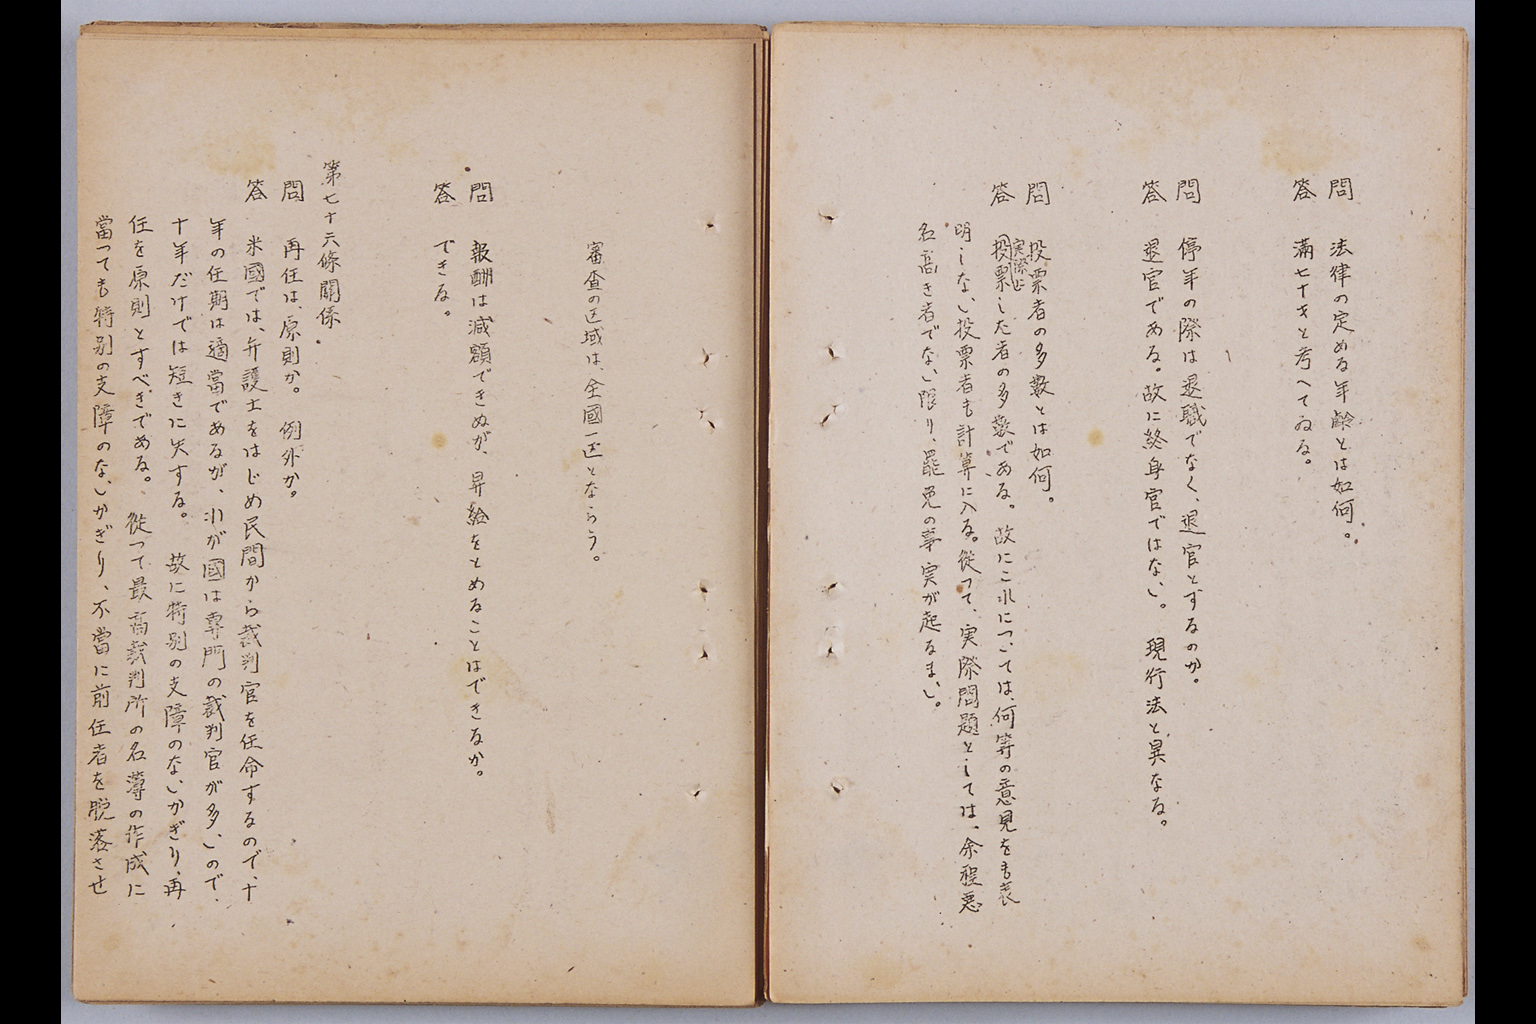 問　法律の定める年齢とは如何。
答　満七十才と考へてゐる。
問　停年の際は退職でなく、退官とするのか。
答　退官である。故に終身官ではない。　現行法と異なる。
問　投票者の多数とは如何。
実際上
答　投票した者の多数である。故にこれについては、何等の意見をも表
明しない投票者も計算に入る。従つて、実際問題としては、余程悪
名高き者でない限り、罷免の事実が起るまい。
審査の区域は、全國一区とならう。
問　報酬は減額できぬが、昇給をとめることはできるか。
答　できる。
第七十六條關係
問　再任は、原則か。　例外か。
答　米國では、弁護士をはじめ民間から裁判官を任命するので、十
年の任期は適當であるが、わが國は専門の裁判官が多いので、
十年だけでは短きに失する。　故に特別の支障のないかぎり、再
任を原則とすべきである。　従つて最高裁判所の名簿の作成に
當つても特別の支障のないかぎり、不當に前任者を脱落させ